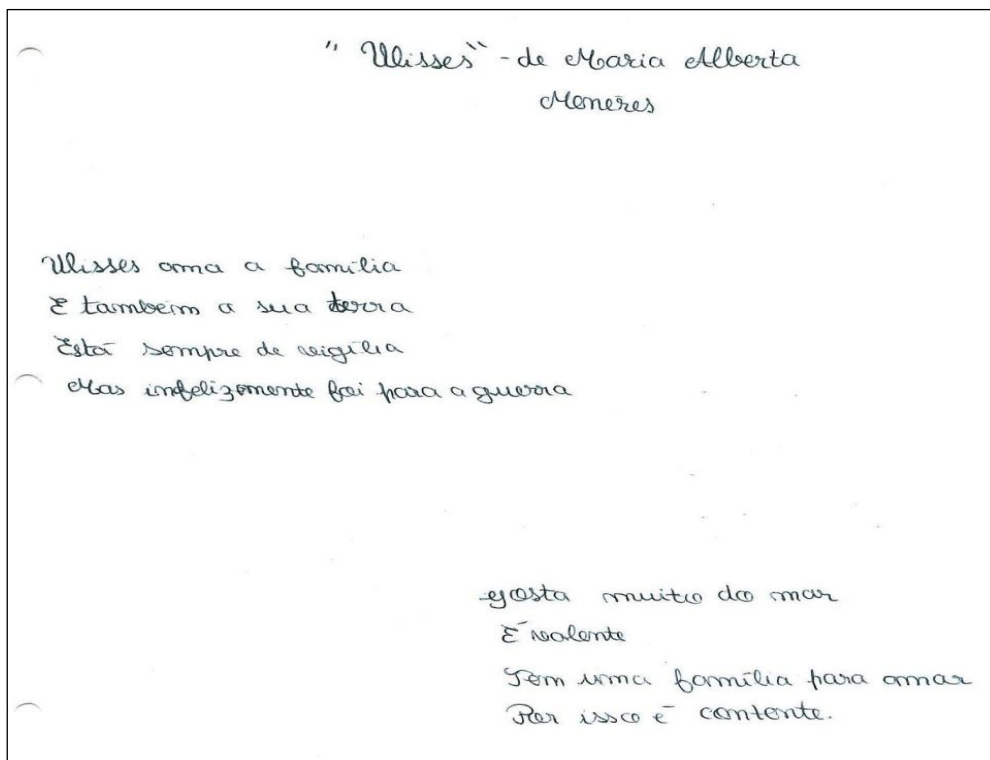 "Ulisses" - de Maria Alberta
Meneres
Ulisses ama a família
E também a sua terra
Está sempre de vigília
Mas infelizmente foi para a guerra
Gosta muito do mar
É valente
Tem uma família para amar
Por isso é contente.